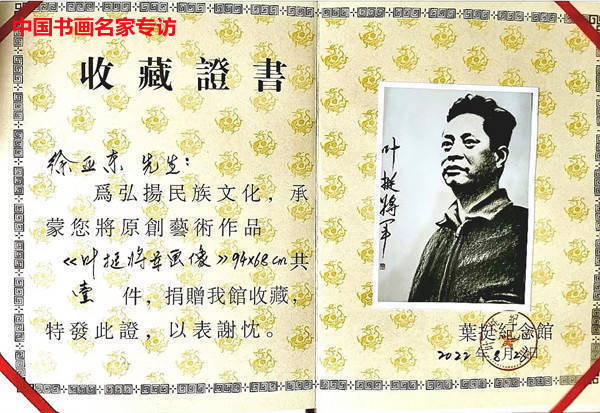 中国书画名家专访
收藏證書
徐亚东 先生:
爲弘揚民族文化,承
蒙您將原創藝術作品
《叶挺将军画像》94x68cm共
壹 件,捐贈我館收藏,
特發此證,以表謝忱。
叶挺將軍
葉挺紀念館
2022年8月28日